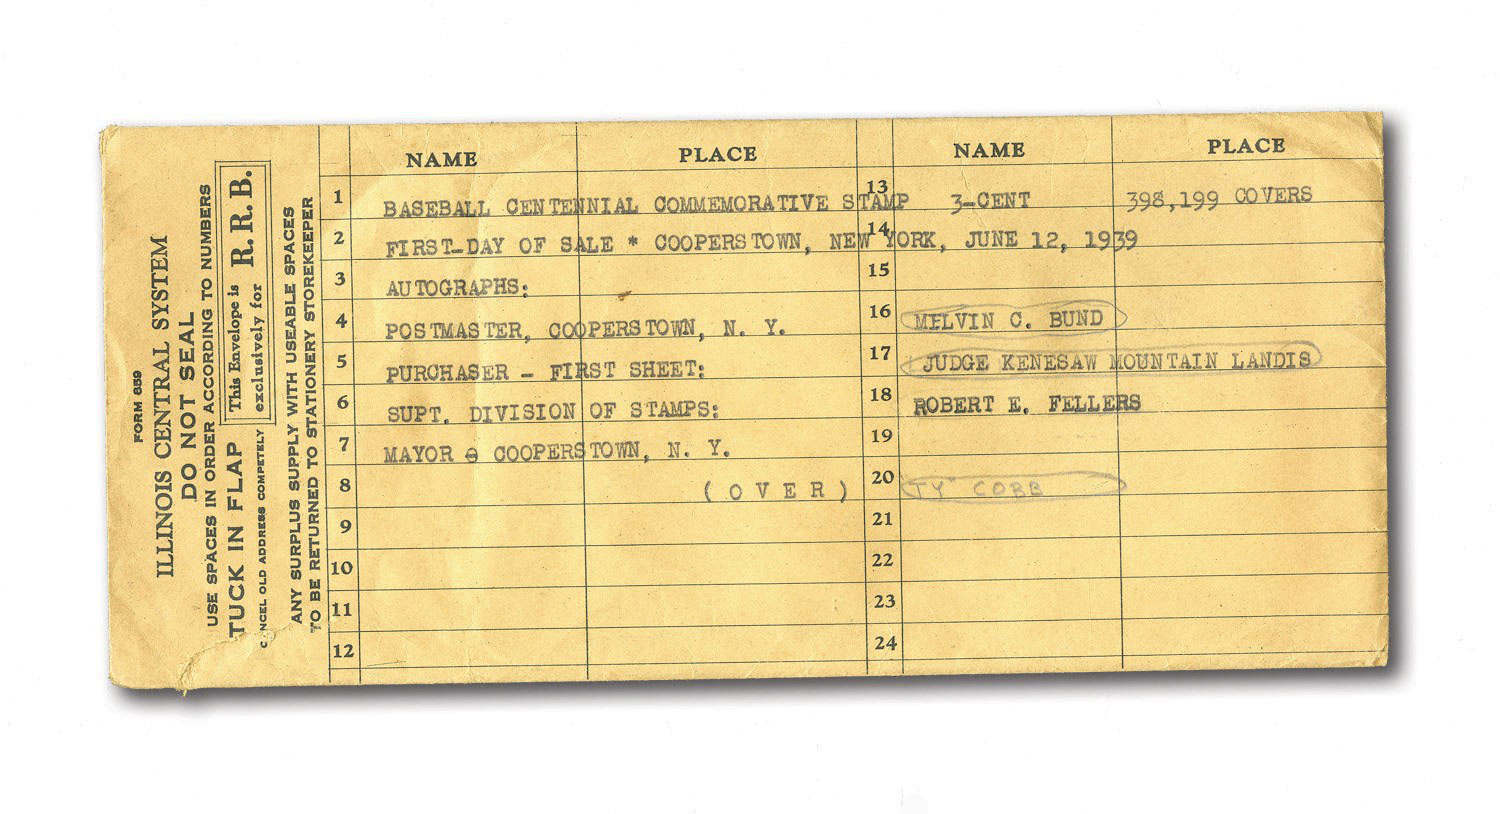 FORM 659
ILLINOIS CENTRAL SYSTEM
DO NOT SEAL
USE SPACES IN ORDER ACCORDING TO NUMBERS
TUCK IN FLAP
This Envelope is exclusively for R. R. B.
CANCEL OLD ADDRESS COMPETELY
ANY SURPLUS SUPPLY WITH USEABLE SPACES
TO BE RETURNED TO STATIONERY STOREKEEPER
NAME PLACE NAME PLACE
1 BASEBALL CENTENNIAL COMMEMORATIVE STAMP 13 3-CENT 398,199 COVERS
2 FIRST-DAY OF SALE * COOPERSTOWN, NEW YORK, JUNE 12, 1939 14
3 AUTOGRAPHS: 15
4 POSTMASTER, COOPERSTOWN, N. Y. 16 MELVIN C. BUND
5 PURCHASER - FIRST SHEET: 17 JUDGE KENESAW MOUNTAIN LANDIS
6 SUPT. DIVISION OF STAMPS: 18 ROBERT E. FELLERS
7 MAYOR COOPERSTOWN, N. Y. 19
8 (OVER) 20 TY COBB
9 21
10 22
11 23
12 24